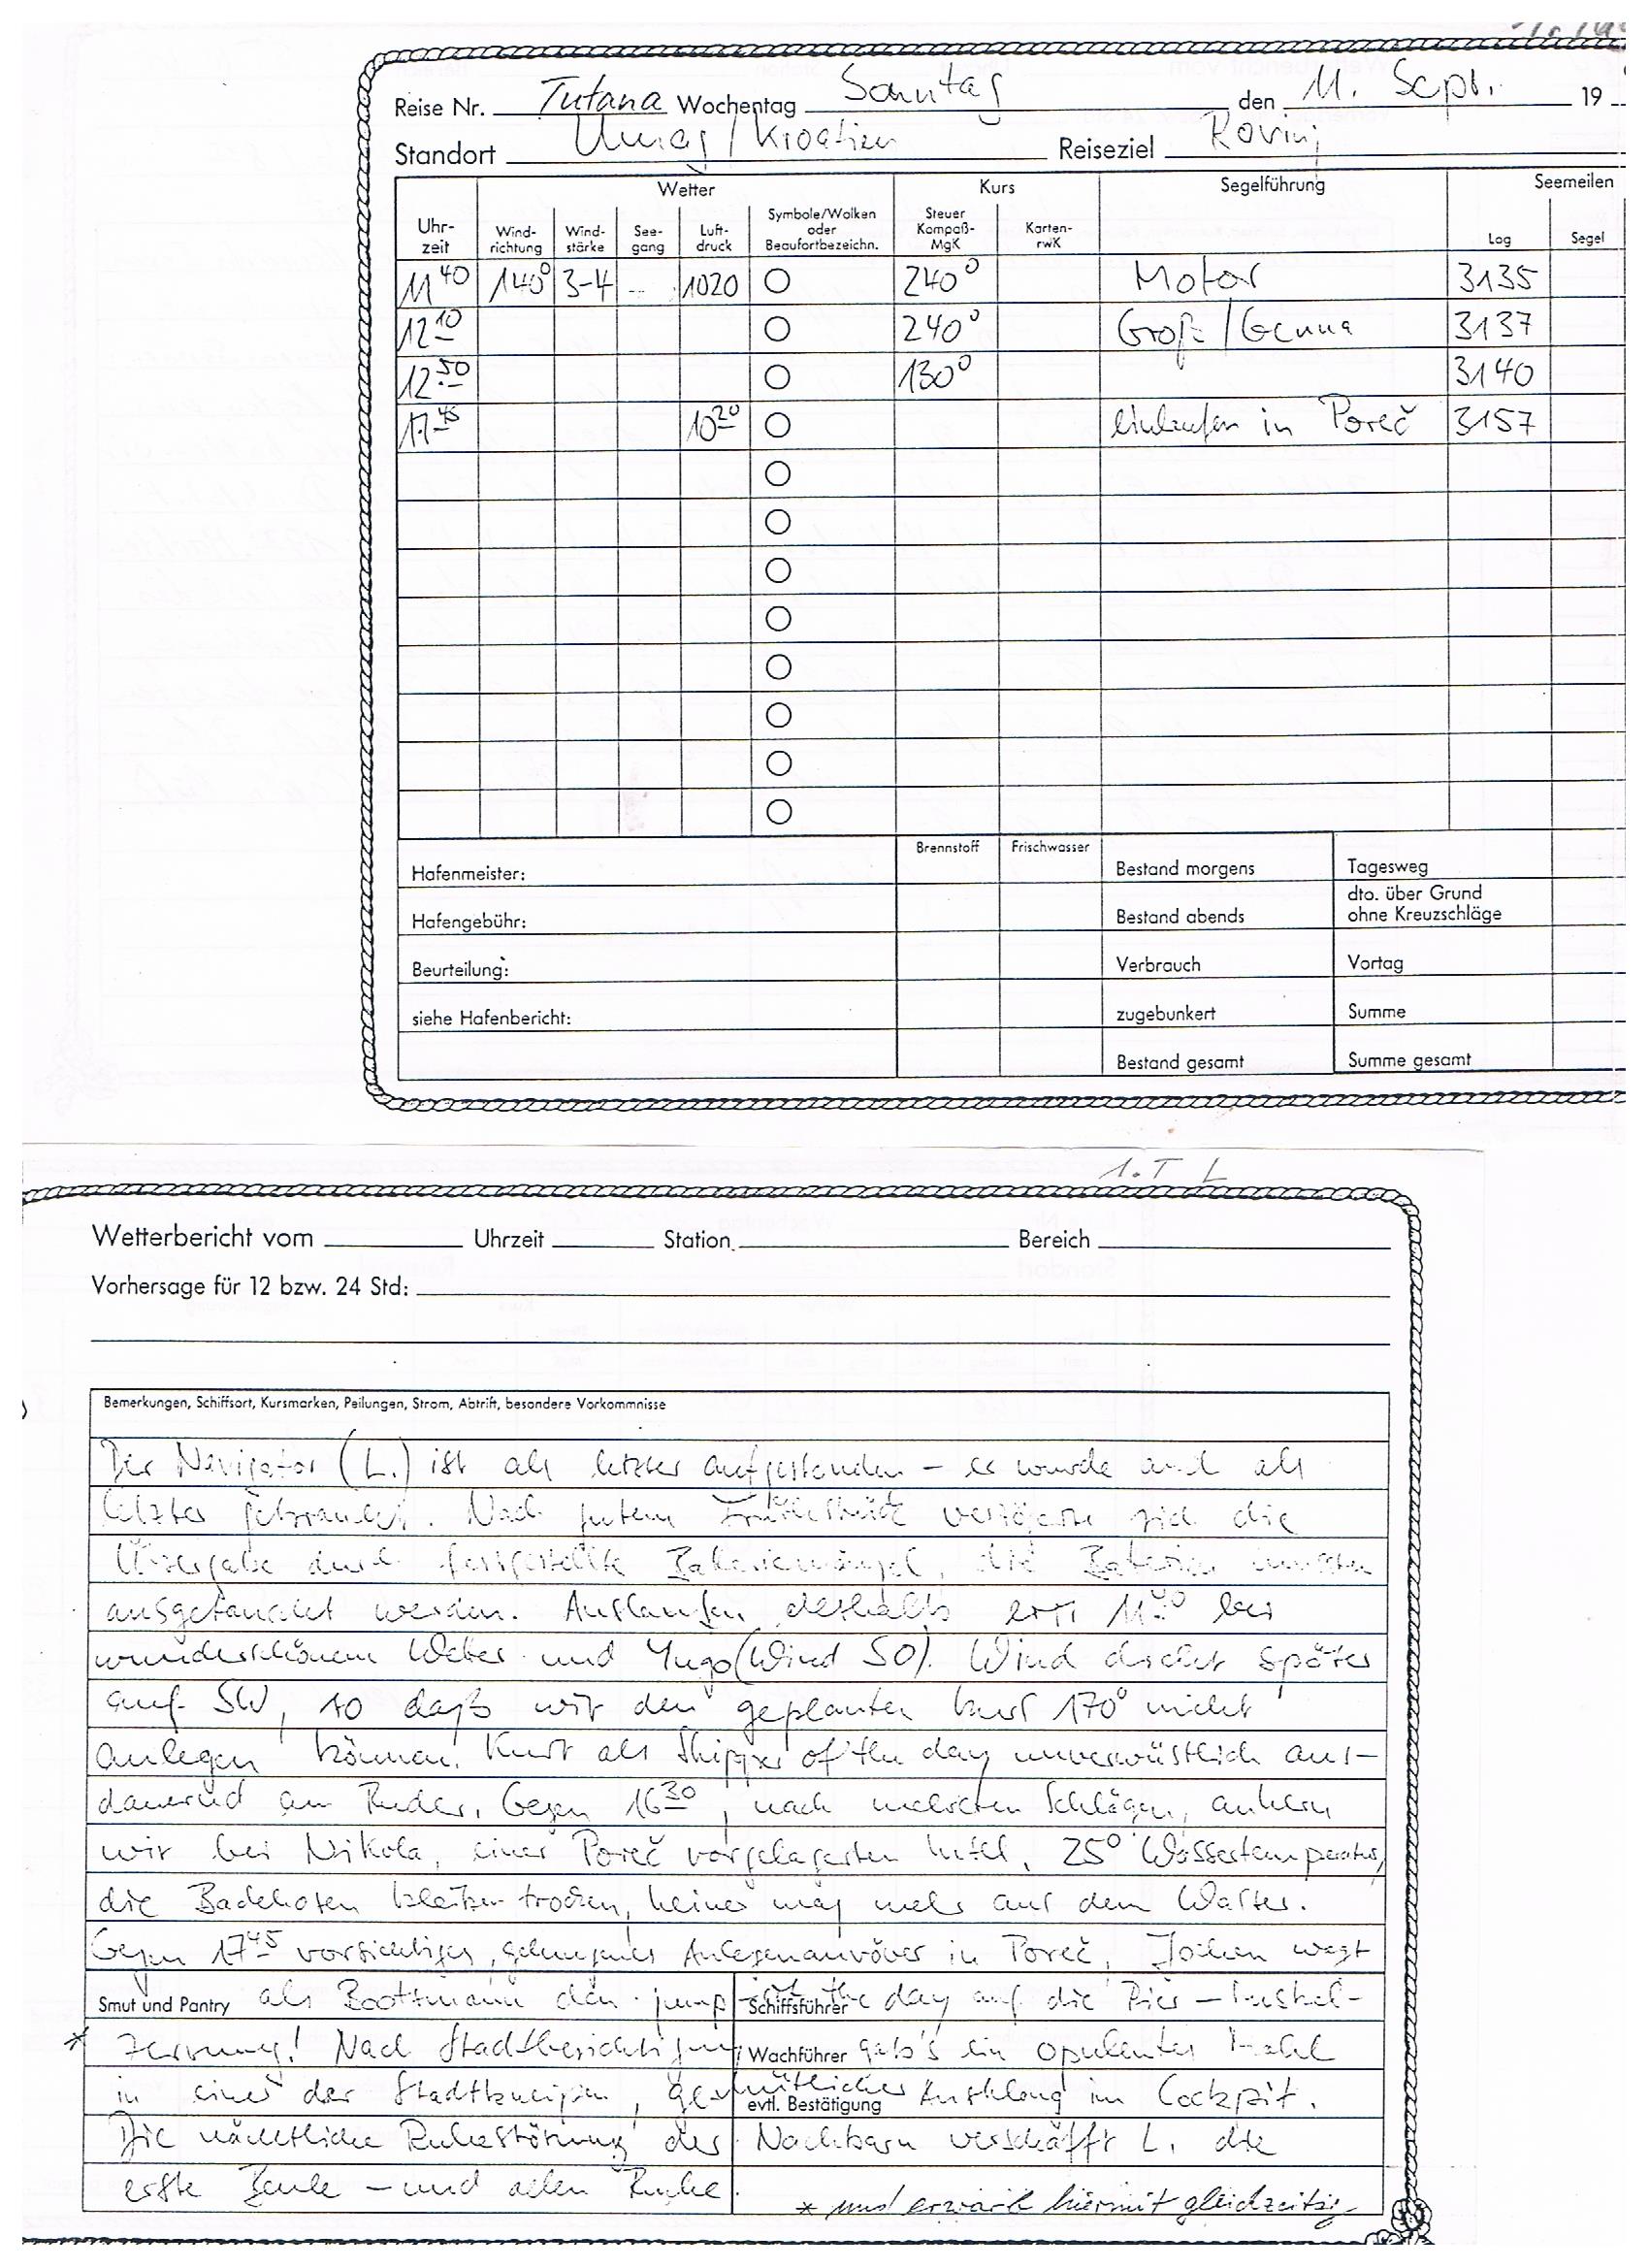 Reise Nr. Tutana Wochentag Sonntag den 11. Sept. 19
Standort Umag / Kroatien Reiseziel Rovinj
Wetter Kurs Segelführung Seemeilen
Uhr-zeit Wind-richtung Wind-stärke See-gang Luft-druck Symbole/Wolken oder Beaufortbezeichn. Steuer Kompaß-MgK Karten-rwK Log Segel
11 40 140° 3-4 -- 1020 240° Motor 3135
12 10 240° Groß / Genua 3137
12 50 130° 3140
17 45 1020 einlaufen in Poreč 3157
Brennstoff Frischwasser
Hafenmeister: Bestand morgens Tagesweg
Hafengebühr: Bestand abends dto. über Grund ohne Kreuzschläge
Beurteilung: Verbrauch Vortag
siehe Hafenbericht: zugebunkert Summe
Bestand gesamt Summe gesamt
1. T L
Wetterbericht vom Uhrzeit Station Bereich
Vorhersage für 12 bzw. 24 Std:
Bemerkungen, Schiffsort, Kursmarken, Peilungen, Strom, Abtrift, besondere Vorkommnisse
Der Navigator (L.) ist als letzter aufgestanden – er wurde auch als
letzter gebraucht. Nach gutem Frühstück verzögerte sich die
Übergabe durch festgestellte Bateriemängel, die Baterien mussten
ausgetauscht werden. Auslaufen deshalb erst 11 40 bei
wunderschönem Wetter und Yugo (Wind SO). Wind dreht später
auf SW, so daß wir den geplanten Kurs 170° nicht
anlegen können. Kurt als Skipper of the day unverwüstlich aus-
dauernd am Ruder. Gegen 16 30, nach mehreren Schlägen, ankern
wir bei Nikola, einer Poreč vorgelagerten Insel. 25° Wassertemperatur,
die Badehosen bleiben trocken, keiner mag mehr aus dem Wasser.
Gegen 17 45 vorsichtiges, gelungenes Anlegemanöver in Poreč, Jochen wagt
Smut und Pantry als Bootsmann den jump of the day auf die Pier – Muskel-
Schiffsführer
* zerrung! Nach Stadtbesichtigung gab's ein opulentes Mahl
Wachführer
in einer der Stadtkneipen, gemütlicher Ausklang im Cockpit.
evtl. Bestätigung
Die nächtliche Ruhestörung der Nachbarn verschafft L. die
erste Beule – und allen Ruhe.
* und erwarb hiermit gleichzeitig